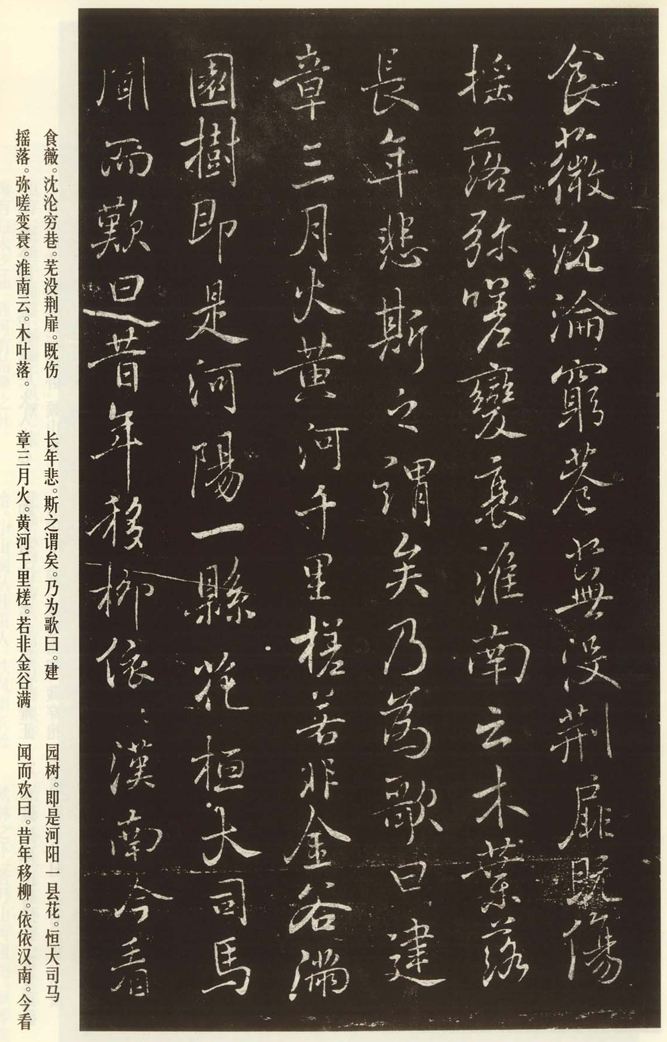 食薇沉淪窮巷蕪沒荊扉既傷
搖落弥嗟變衰淮南云木葉落
長年悲斯之謂矣乃為歌曰建
章三月火黃河千里槎若非金谷滿
園樹即是河陽一縣花桓大司馬
聞而歎曰昔年移柳依〻漢南今看
食薇。沈沦穷巷。芜没荆扉。既伤
摇落。弥嗟变衰。淮南云。木叶落。
长年悲。斯之谓矣。乃为歌曰。建
章三月火。黄河千里槎。若非金谷满
园树。即是河阳一县花。恒大司马
闻而欢曰。昔年移柳。依依汉南。今看